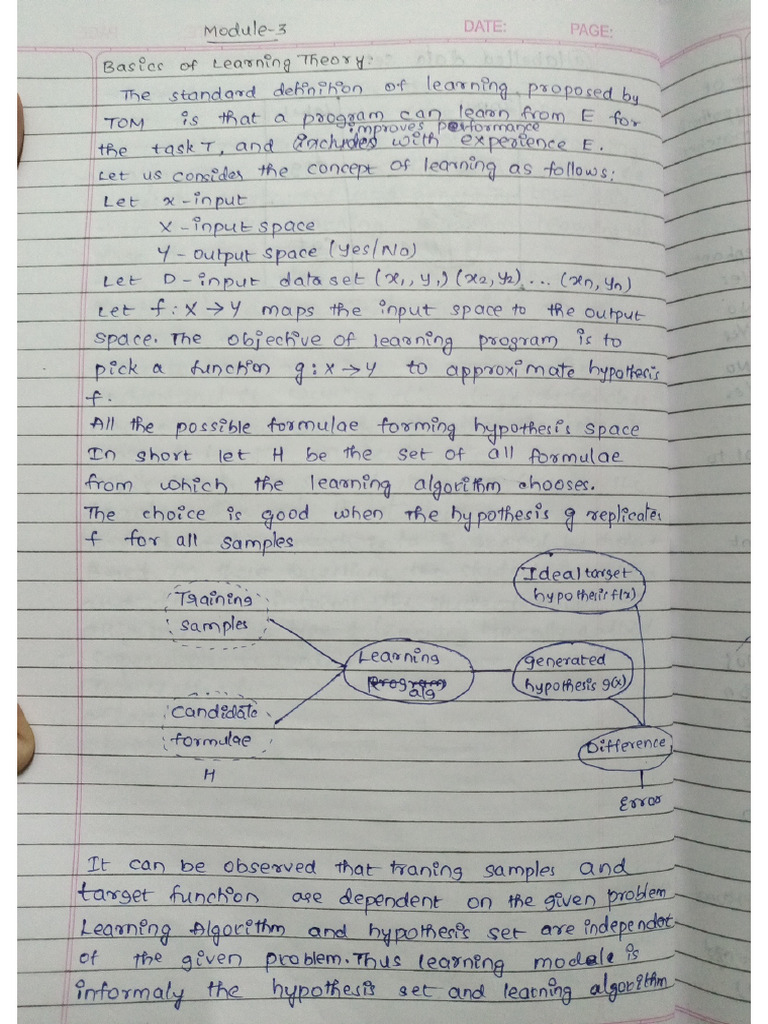 Module-3
DATE: PAGE:
Basics of Learning Theory:
The standard definition of learning proposed by
TOM is that a program can learn from E for
improves performance
the task T, and includes with experience E.
Let us consider the concept of learning as follows:
Let x-input
X-input space
Y-output space (Yes/No)
Let D-input data set (x1, y1) (x2, y2) ... (xn, yn)
Let f: X → Y maps the input space to the output
space. The objective of learning program is to
pick a function g: X → Y to approximate hypothesis
f.
All the possible formulae forming hypothesis space
In short let H be the set of all formulae
from which the learning algorithm chooses.
The choice is good when the hypothesis g replicates
f for all samples
Ideal target
hypothesis f(x)
Training
samples
Learning
program
alg
generated
hypothesis g(x)
candidate
formulae
H
Difference
Error
It can be observed that traning samples and
target function are dependent on the given problem
Learning Algorithm and hypothesis set are independet
of the given problem. Thus learning modele is
informaly the hypothesis set and learning algorithm